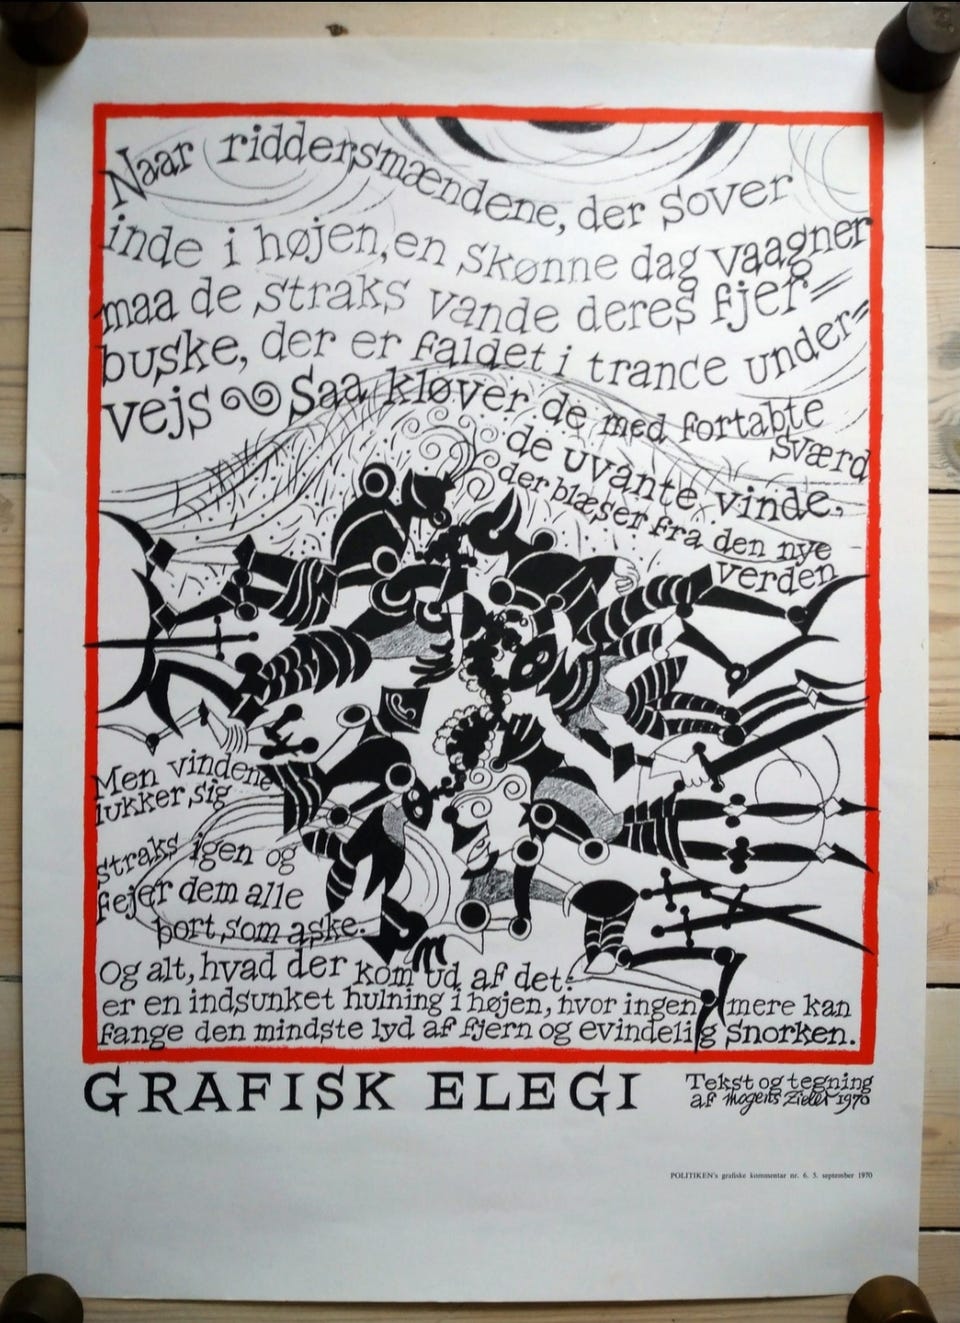 Naar riddersmændene, der Sover
inde i højen, en Skønne dag vaagner
maa de straks vande deres fjer=
buske, der er faldet i trance under=
vejs Saa kløver de med fortabte
Sværd
de uvante vinde,
der blæser fra den nye
verden
Men vindene
lukker sig
straks igen og
fejer dem alle
bort som aske.
Og alt, hvad der kom ud af det:
er en indsunket hulning i højen, hvor ingen mere kan
fange den mindste lyd af fjern og evindelig Snorken.
GRAFISK ELEGI
Tekst og tegning
af Mogens Zieler 1970
POLITIKEN's grafiske kommentar nr. 6. 5. september 1970